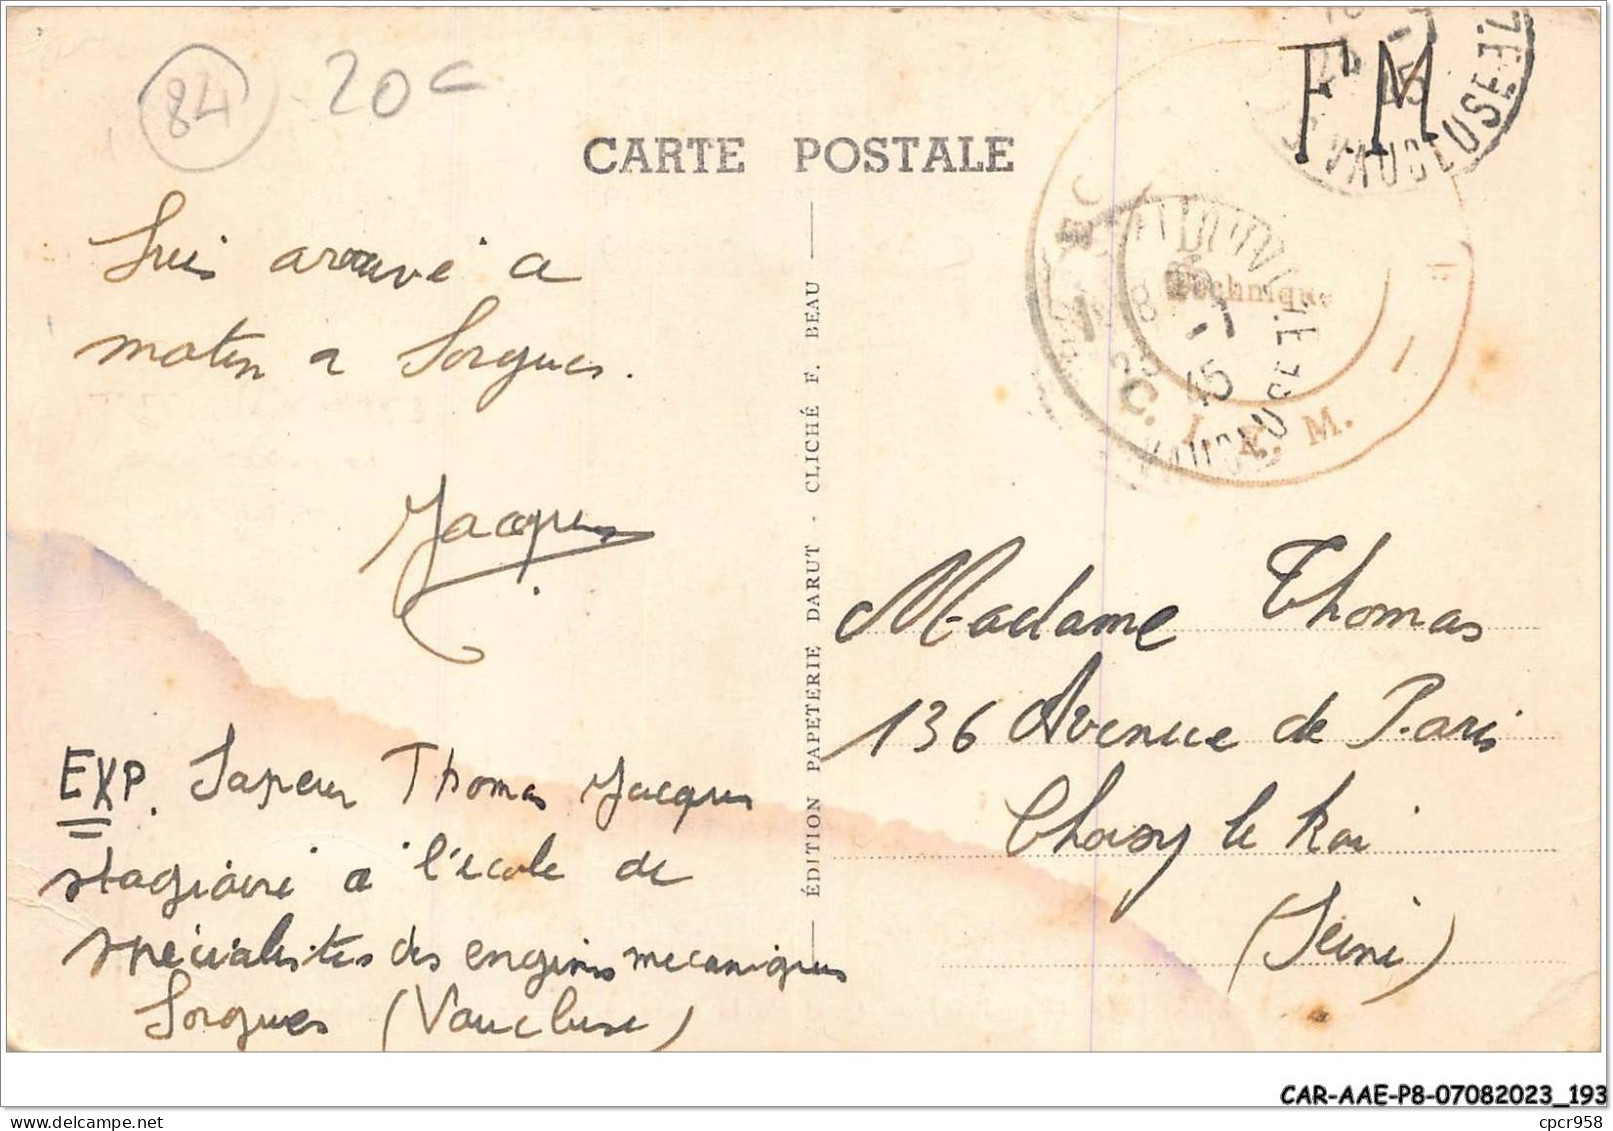 84
20c
FM
CARTE POSTALE
VAUCLUSE
Technique
-7
45
VAUCLUSE
M.
Suis arrivé a
matin a Sorgues.
Jacques
ÉDITION PAPETERIE DARUT - CLICHÉ F. BEAU
Madame Thomas
136 Avenue de Paris
Choisy le Roi
(Seine)
EXP. Sapeur Thomas Jacques
stagiaire a l'école de
spécialistes des engins mecaniques
Sorgues (Vaucluse)
CAR-AAE-P8-07082023_193
www.delcampe.net
cpcr958